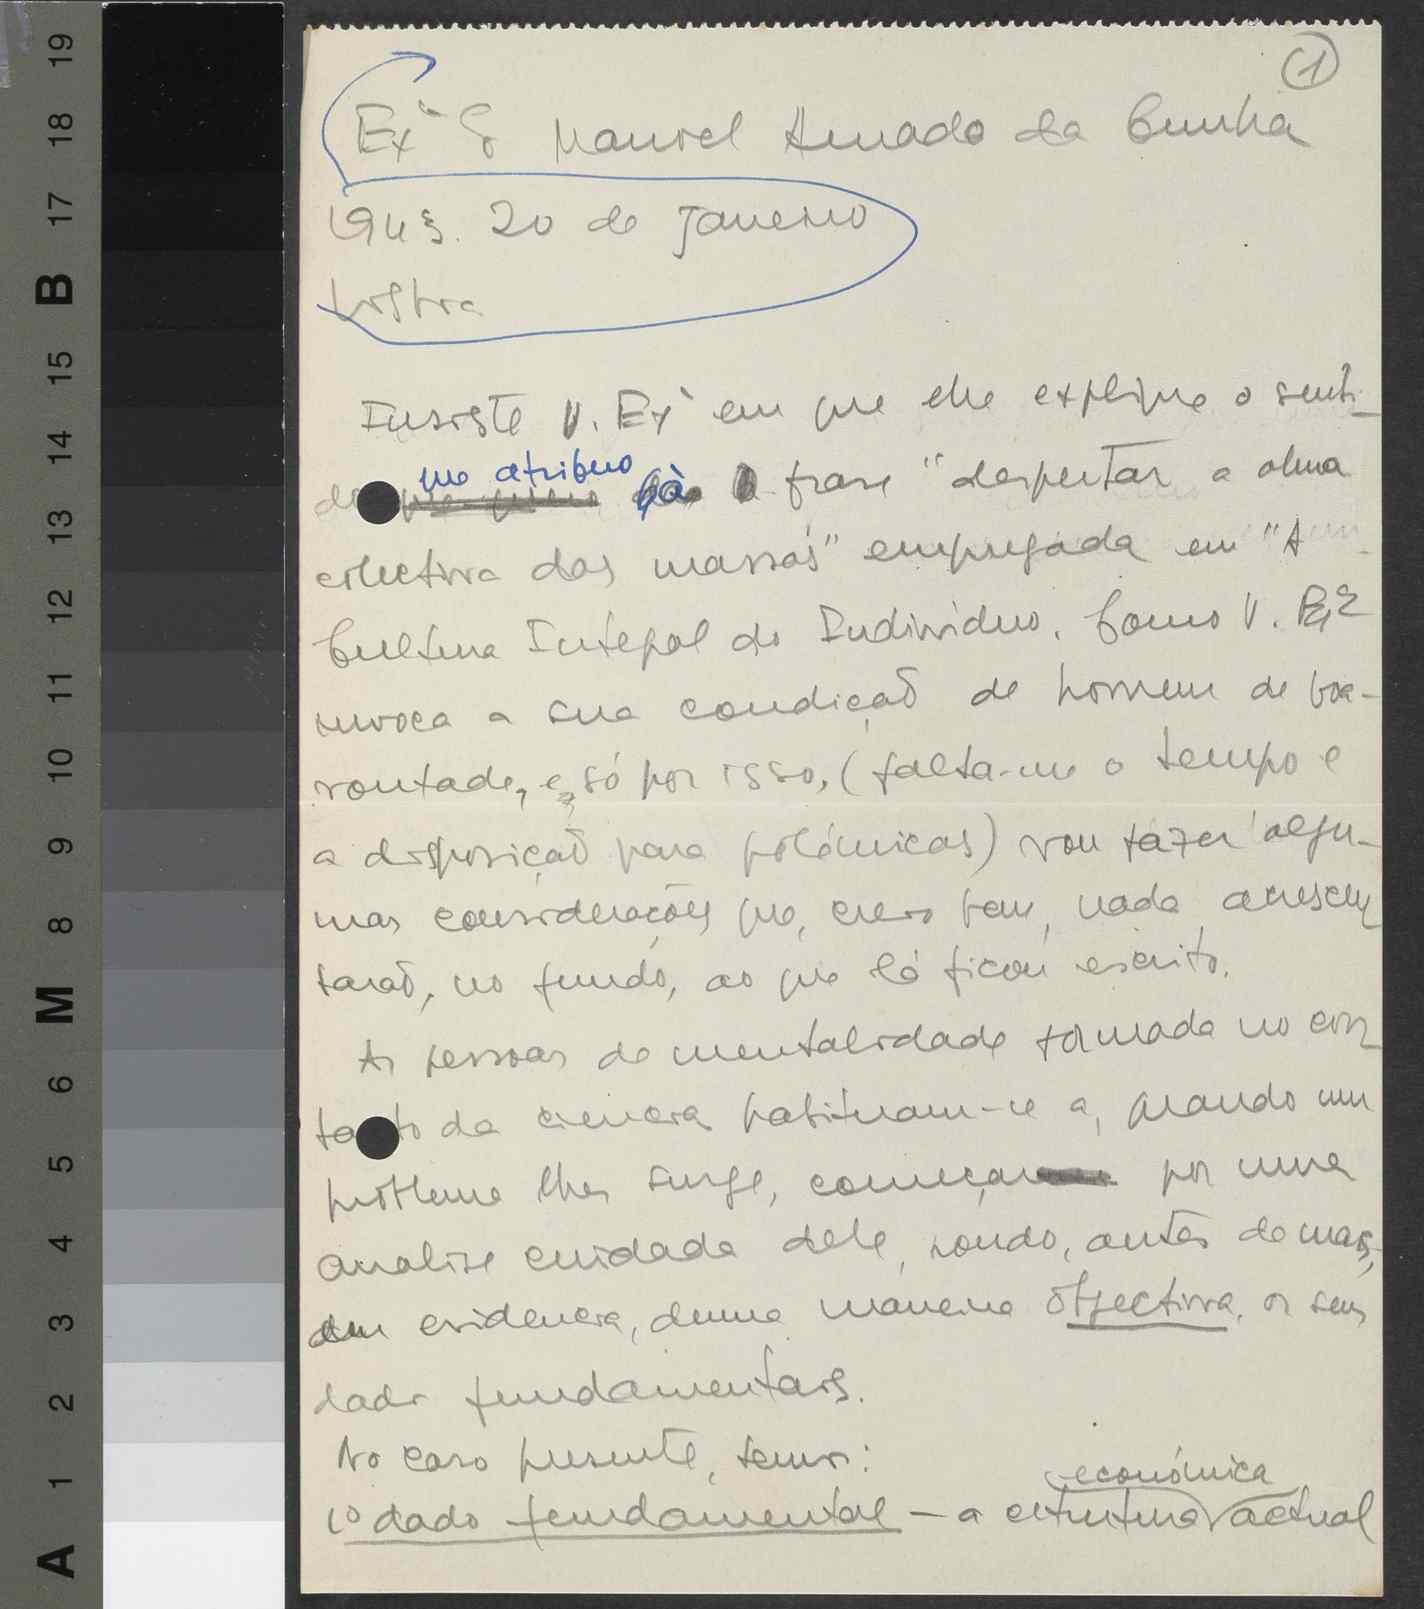 1
Exº Sr Manuel Amado da Cunha
1943. 20 de Janeiro
Lisboa
Insiste V. Exª em que lhe explique o senti-
do me atribuo à frase "despertar a alma
colectiva das massas" empregada em "A
Cultura Integral do Indivíduo. Como V. Exª
invoca a sua condição de homem de boa-
vontade, e, só por isso, (falta-me o tempo e
a disposição para polémicas) vou fazer algu-
mas considerações que, creio bem, nada acrescen
tarão, no fundo, ao que lá ficou escrito.
As pessoas de mentalidade formada no con
tacto da ciencia habituam-se a, quando um
problema lhes surge, começar por uma
analise cuidada dele, pondo, antes de mais,
em evidencia, duma maneira objectiva, os seus
dados fundamentais.
No caso presente, temos:
económica
1º dado fundamental — a estrutura actual
19
18
17
B
16
15
14
13
12
11
10
9
8
M
7
6
5
4
3
2
1
A